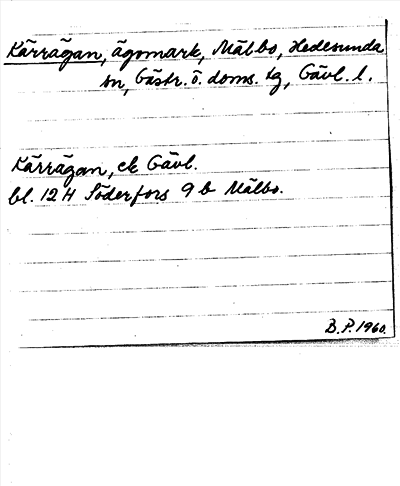 Kärrägan, ägomark, Mälbo, Hedesunda
sn, Gästr. ö. doms. tg, Gävl. l.
Kärrägan, ek Gävl.
bl. 12 H Söderfors 9 b Mälbo.
B.P. 1960.